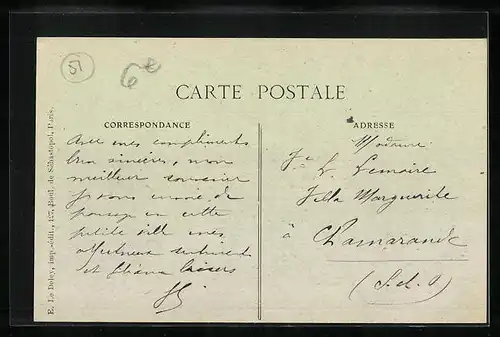 51
6e
CARTE POSTALE
CORRESPONDANCE
Avec mes compliments
bien sincères, mon
meilleur souvenir
je vous envoie de
cette
petite ville mes
affectueux sentiments
et baisers
ADRESSE
Madame
L. Lemoire
Villa Marguerite
à Chamarande
(S. et O)
E. Le Deley, imp.-édit., 127, Boul. de Sébastopol, Paris.